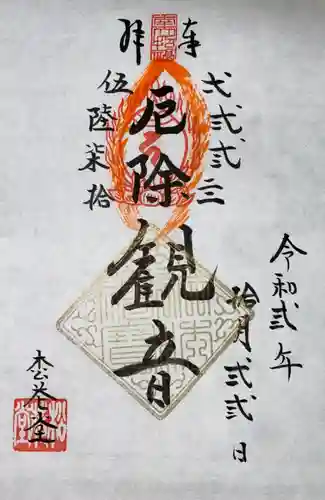 奉拝
弌弐弐三
伍陸柒拾
厄除観音
令和弐年
拾月弐弐日